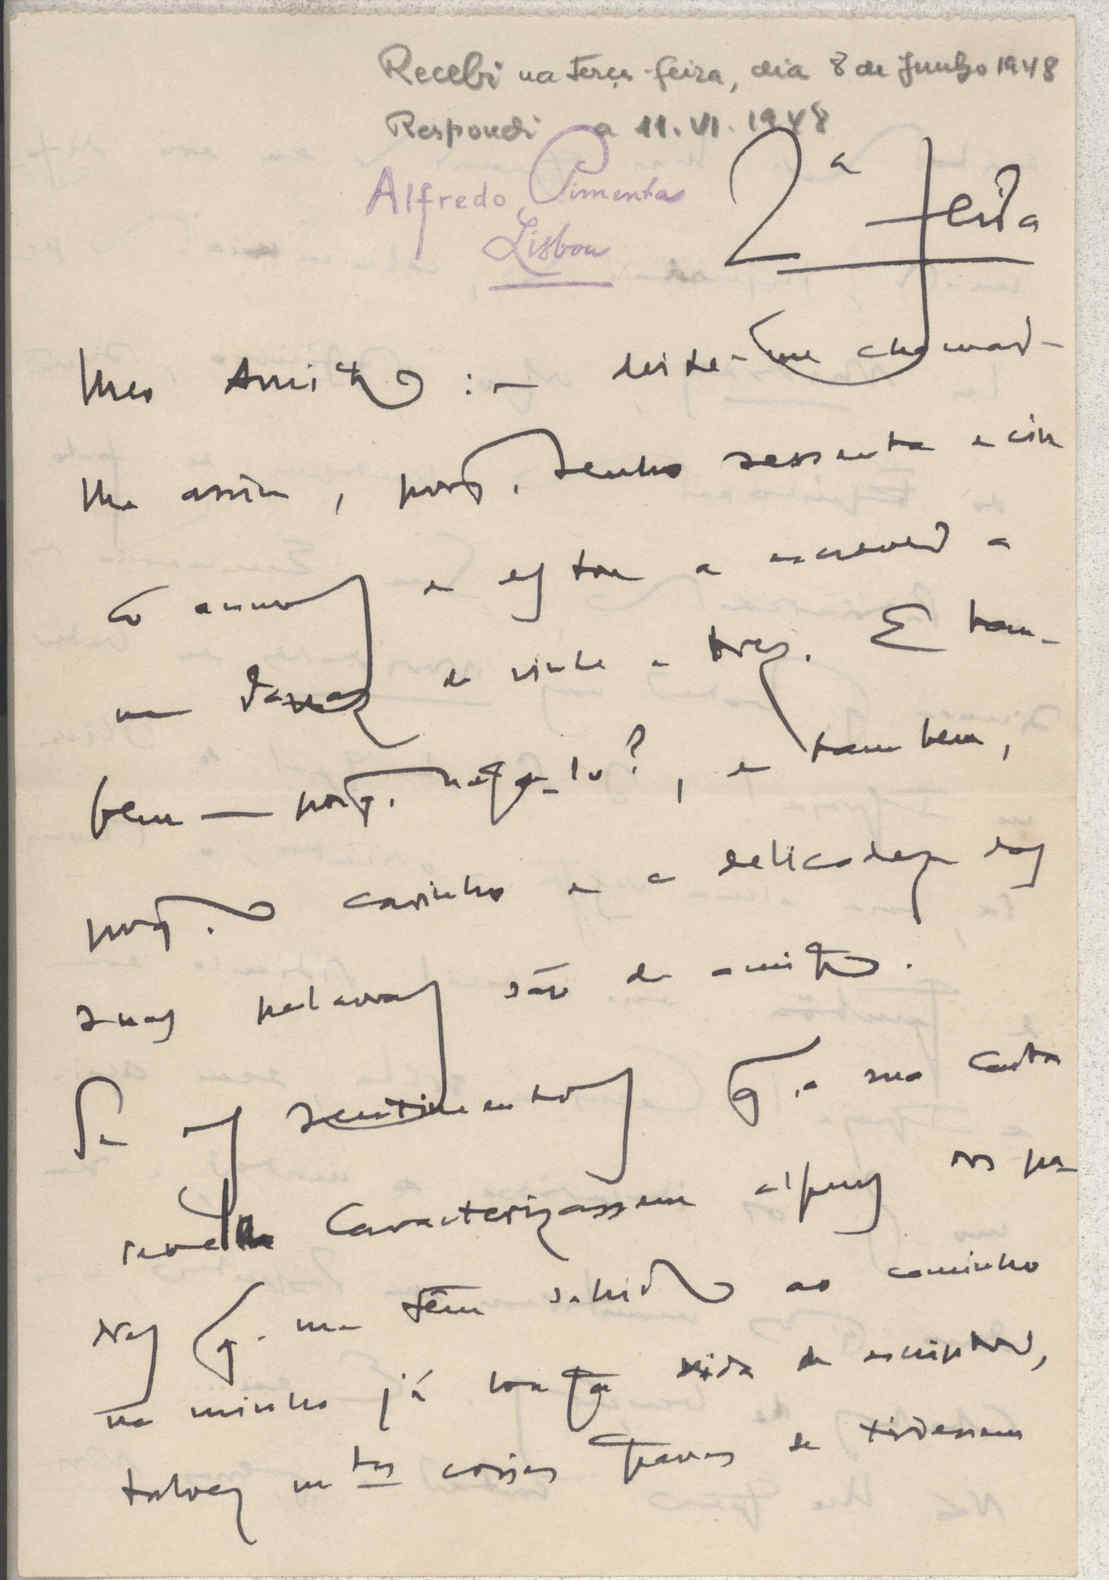 Recebi na terça-feira, dia 8 de Junho 1948
Respondi a 11.VI.1948
Alfredo Pimenta
Lisboa
2ª feira
Meu Amigo: – deixe-me chamar-
lhe assim, porq. tenho sessenta e cin
co annos e estou a escrever a
um rapaz de vinte e trez. E tam-
bem — porq. negal-o?, e tambem,
porq. o carinho e a delicadeza das
suas palavras são de amigo.
Se os sentimentos q. a sua carta
revela caracterizassem alguns dos pa
dres q. me têm sahido ao caminho
na minha já longa vida de escriptor,
talvez mtas coisas graves se tivessem